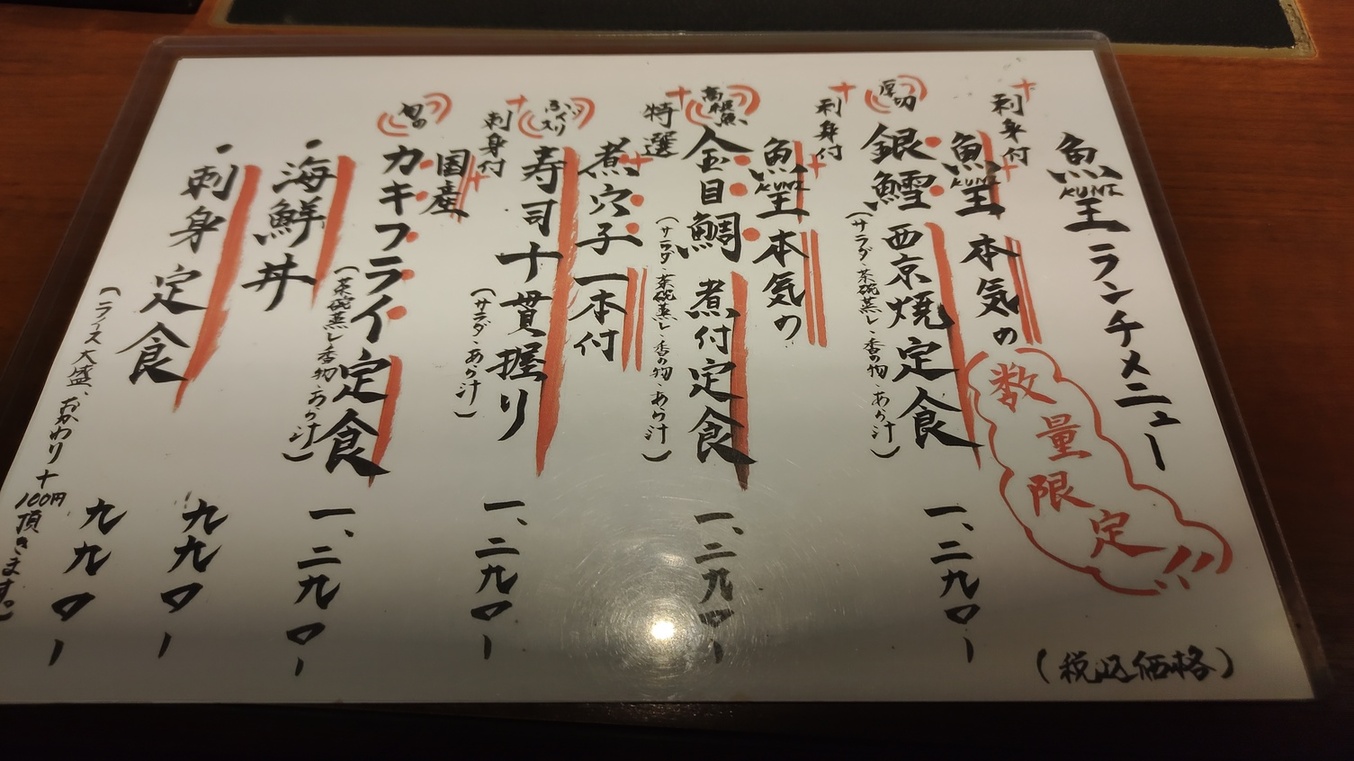 魚KUNI王 ランチメニュー
数量限定
(税込価格)
刺身付
魚KUNI王 本気の
厚切
銀鱈西京焼定食
(サラダ・茶碗蒸し・香の物・あら汁)
一、二九〇ー
刺身付
魚KUNI王 本気の
高級魚
金目鯛煮付定食
(サラダ・茶碗蒸し・香の物・あら汁)
一、二九〇ー
特選
煮穴子一本付
寿司十貫握り
(サラダ・あら汁)
一、二九〇ー
刺身付
国産
カキフライ定食
(茶碗蒸し・香の物・あら汁)
一、二九〇ー
・海鮮丼
九九〇ー
・刺身定食
九九〇ー
(ライス大盛、おかわり+100円頂きます。)